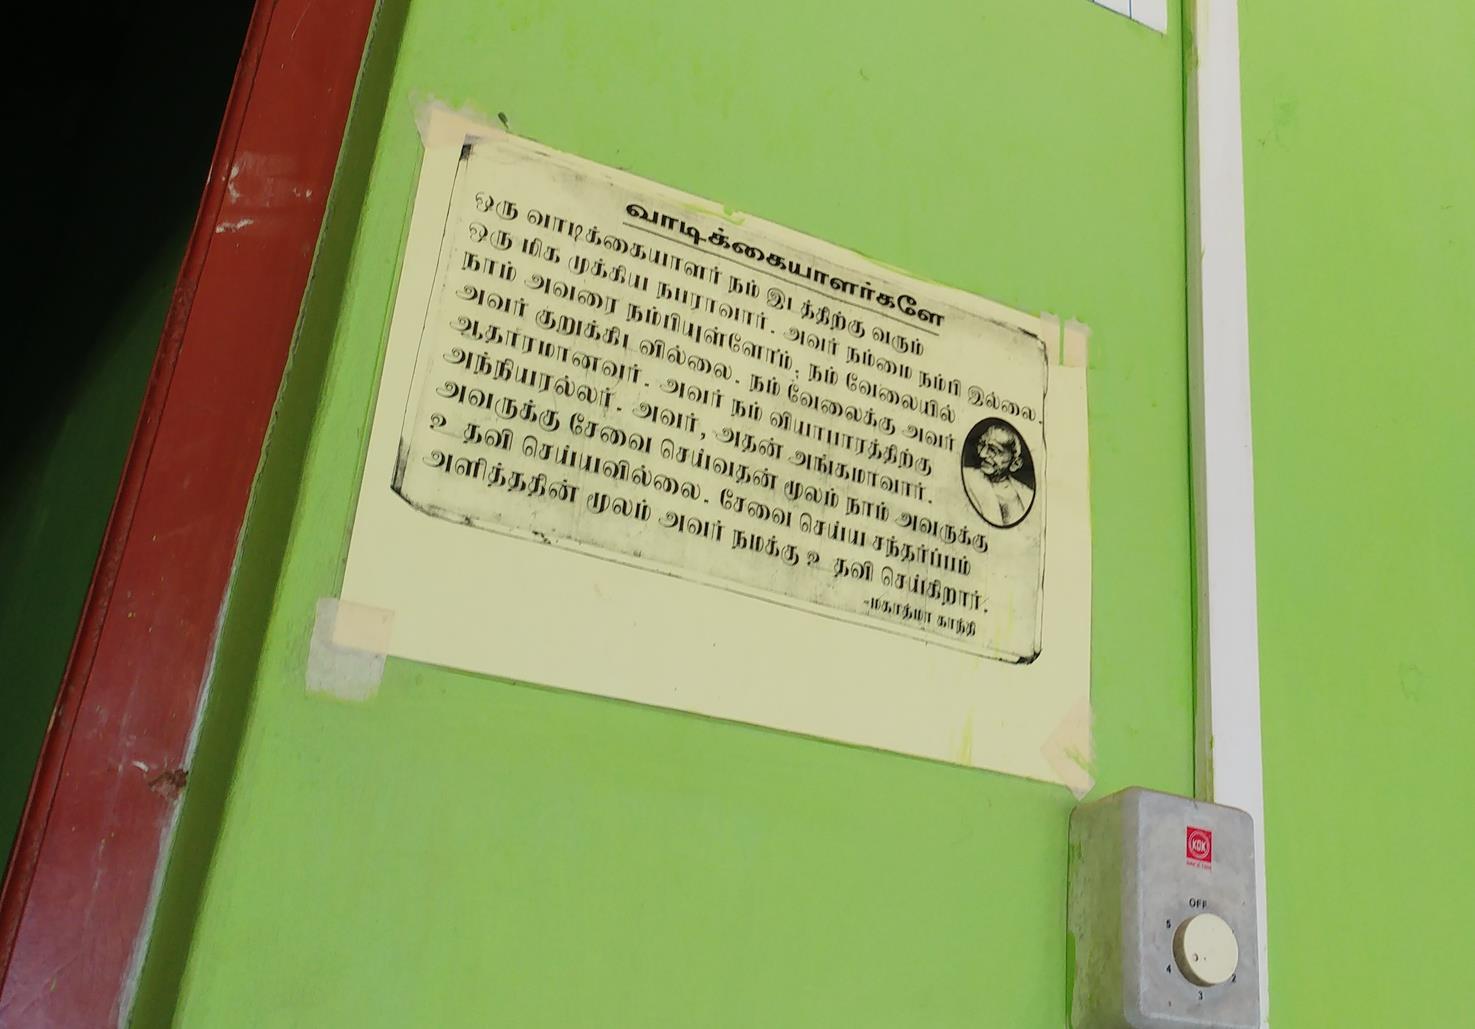 வாடிக்கையாளர்களே
ஒரு வாடிக்கையாளர் நம் இடத்திற்கு வரும்
ஒரு மிக முக்கிய நபராவார். அவர் நம்மை நம்பி இல்லை.
நாம் அவரை நம்பியுள்ளோம்; நம் வேலையில்
அவர் குறுக்கிடவில்லை. நம் வேலைக்கு அவர்
ஆதாரமானவர். அவர் நம் வியாபாரத்திற்கு
அந்நியரல்லர். அவர், அதன் அங்கமாவார்.
அவருக்கு சேவை செய்வதன் மூலம் நாம் அவருக்கு
உதவி செய்யவில்லை. சேவை செய்ய சந்தர்ப்பம்
அளித்ததின் மூலம் அவர் நமக்கு உதவி செய்கிறார்.
-மகாத்மா காந்தி
KDK
OFF
5
4
3
2